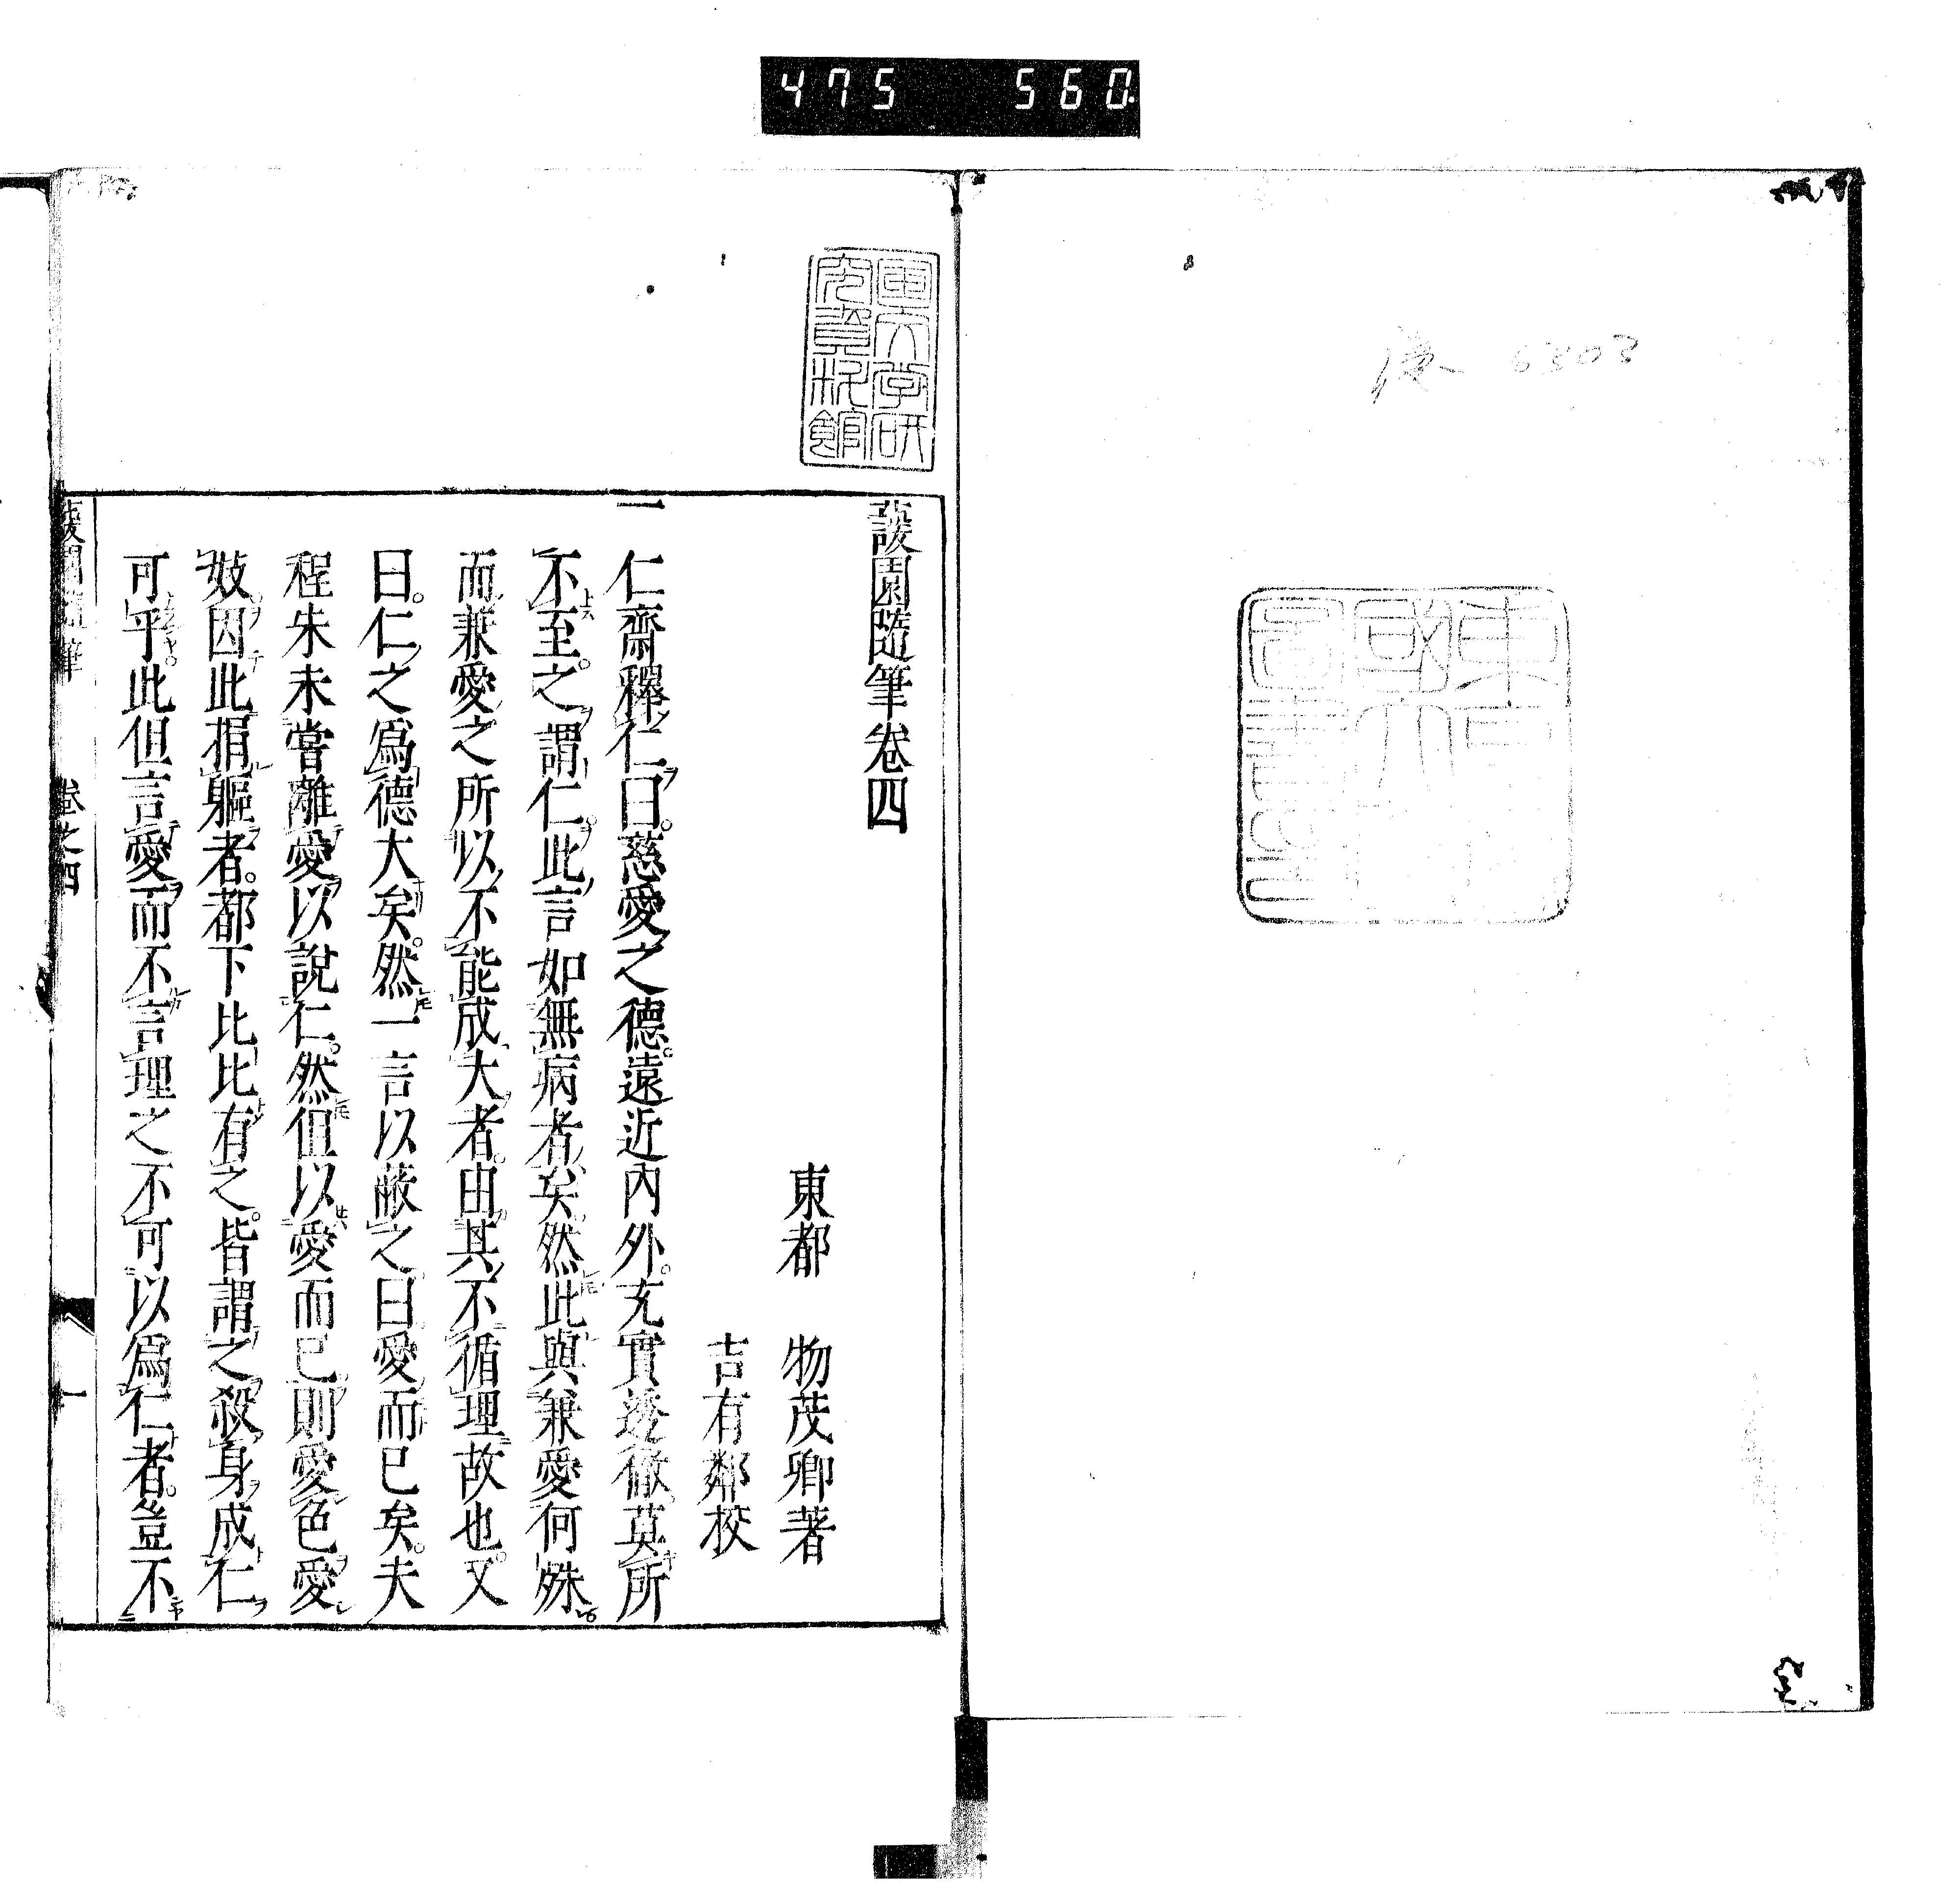 475 560
6303
國文学研
究資料館
蘐園隨筆卷四
東都 物茂卿著
吉有鄰校
一仁齋釋仁曰。慈愛之德。遠近內外。充實透徹。莫所
不至。之謂仁。此言如無病者矣。然此與兼愛何殊。
而兼愛之所以不能成大者。由其不循理故也。又
曰。仁之爲德大矣。然一言以蔽之。曰愛而已矣。夫
程朱未嘗離愛以說仁。然但以愛而已。則愛色愛
妓因此捐軀者。都下比比有之。皆謂之殺身成仁
可乎。此但言愛而不言理之不可以爲仁者。豈不
蘐園隨筆 卷之四 一